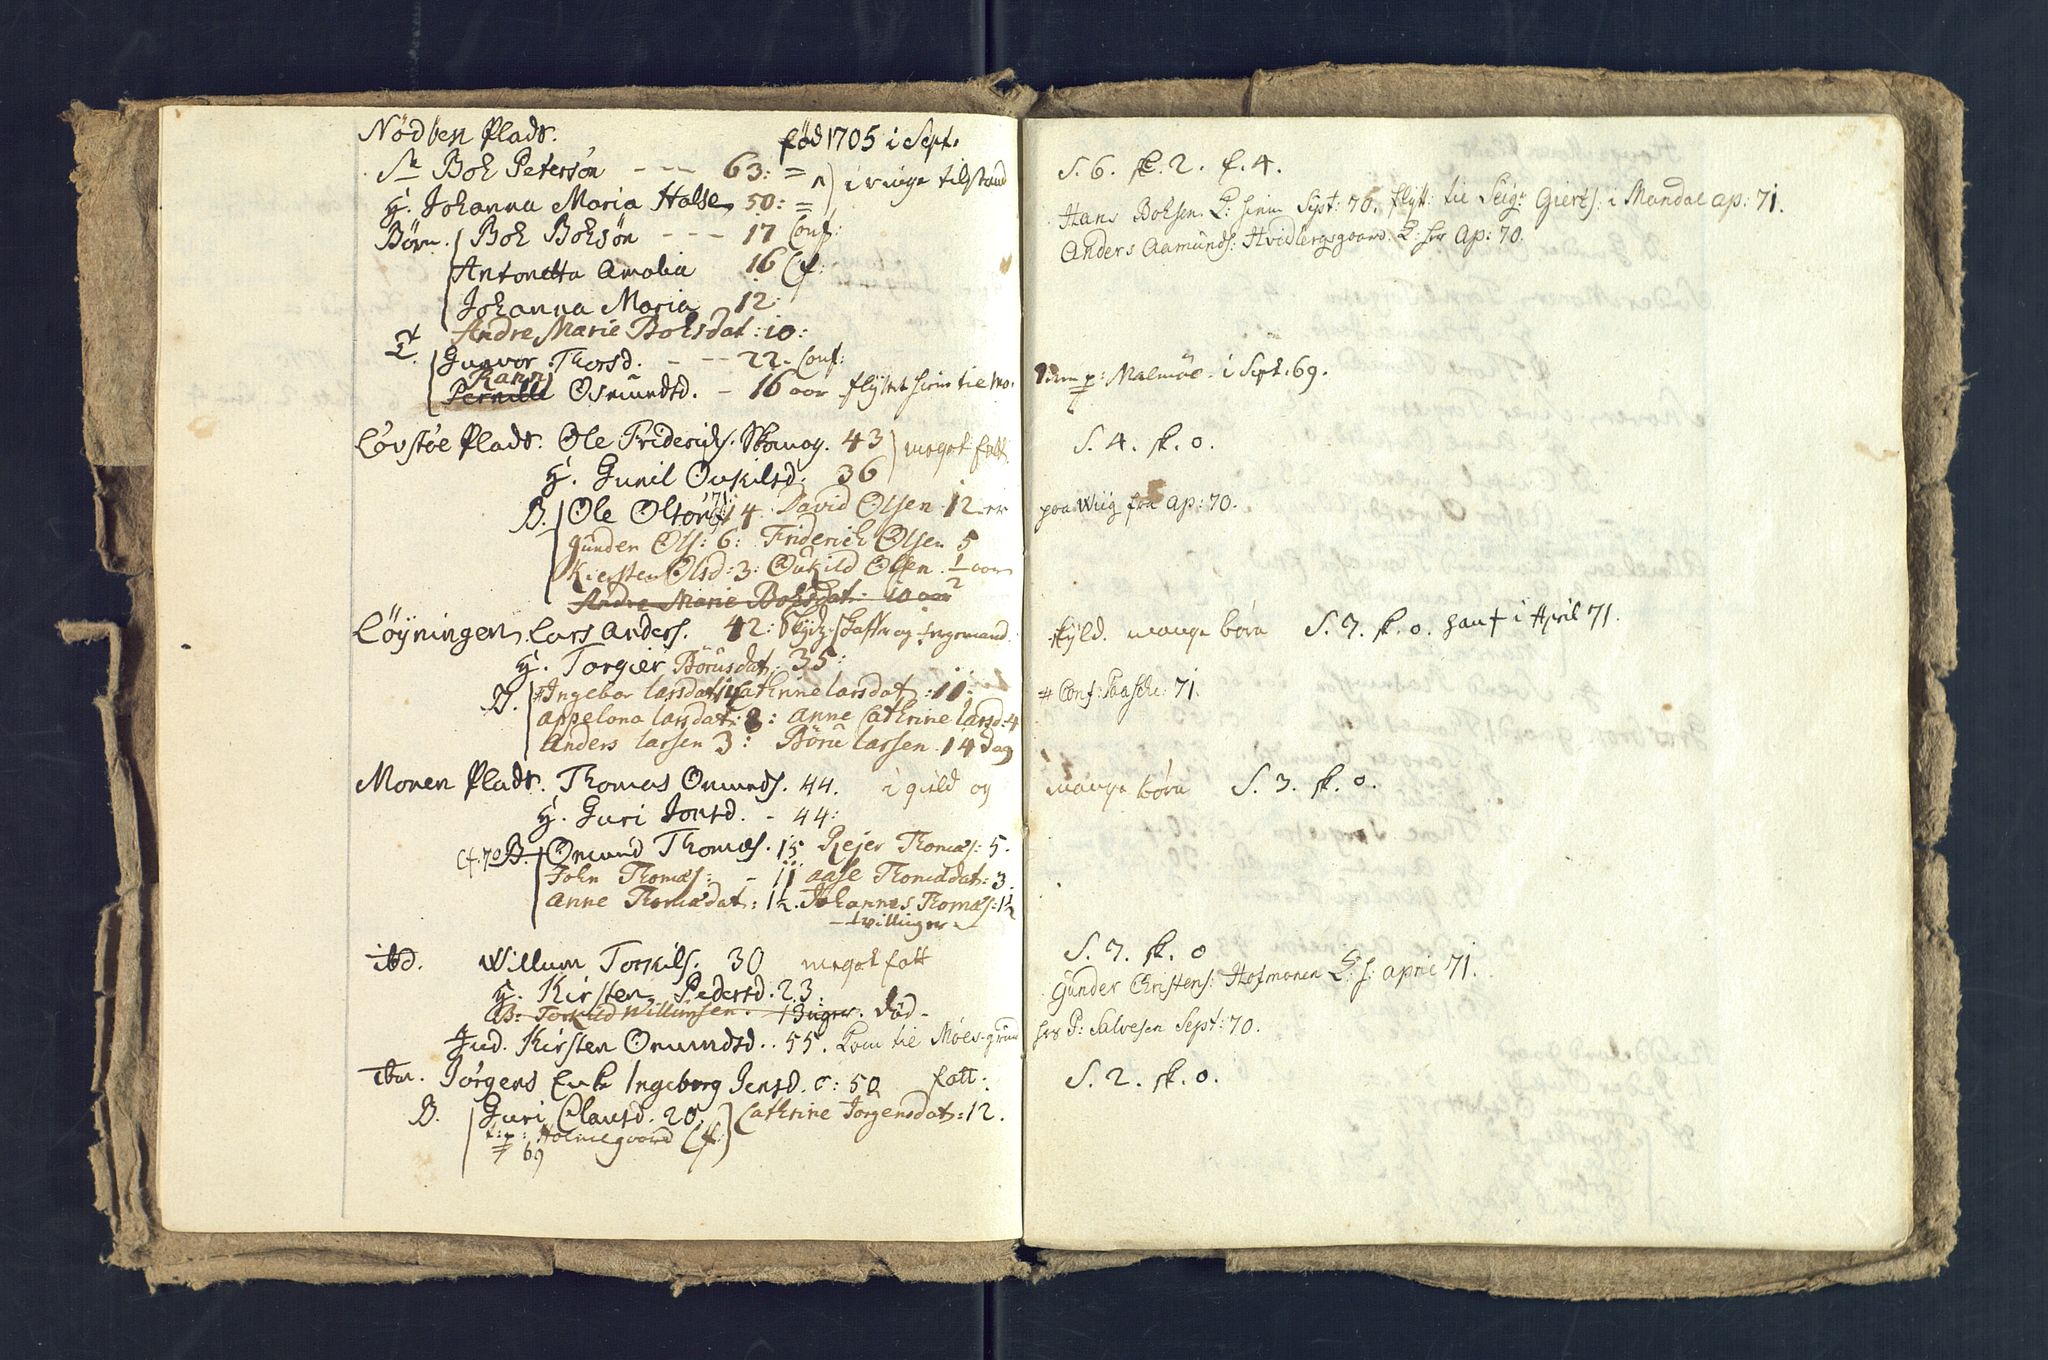 Nödben Plads. fød 1705 i Sept.
Sr Boh Petersøn - - - 63: = i ringe tilstand
H. Johanna Maria Halse 50: =
Børn. Boh Bohsøn - - - 17 Conf:
Antonetta Amalia 16 Cf:
Johanna Maria 12:
Andre Marie Bohsdat: 10:
T. Gunvor Thorsd. - - - 22. Conf:
Rann
Pernille Osmundsd. - 16 aar flyttet hiem til Mo.
Løvstøe Plads. Ole Friderichs. Skomag. 43 meget fatt.
H. Gunil Ovkilsd. 36
B. Ole Olson 14 David Olsen 12
gunder Ols: 6: Friderich Olsen 5
Kiersten Olsd: 3: Oukild Olsen. 1/2 aar
Andre Marie Bohsdat. 10 aar
Löyningen. Lars Anders. 42: Skydz-skaffer og
H. Torgier Börusdat: 35:
B. Ingebor larsdat: 14 Cathrine larsdat: 11:
appelona larsdat: 8: anne Cathrine larsd: 4
Anders larsen 3: Börü larsen. 14 dag
Monen Plads. Thomas Omunds. 44. i gield og
H. Guri Jonsd. - 44:
Cf. 70 B. Omund Thomæs. 15 Rejer Thomæs: 5.
John Thomæs: - 11 aase Thomædat: 3.
anne Thomædat: 1½. Johannes Thomæs: 1½
- tvillinger -
ibd. Willum Torkils. 30 meget fatt
H. Kirsten Pedersd. 23.
B: Torkild Willumsen. 13 uger. død -
Ind. Kirsten Omundsd.. 55. kom til Moes-grund
ibm. Jørgens Enke Ingeborg Jensd. o: 50 fatt:
B. Guri Clausd. 20. Cathrine Jørgensdat: 12.
t: p: Holmegaard Cf:
69
S. 6. sk. 2. f. 4.
Hans Bohsen. hiem Sept: 76. flytt: til Seigr Gierts: i Mandal ap: 71.
Anders Aamunds: Hvidbergsgaard. hos Ap: 70.
p: Malmöe. i Sept. 69.
S. 4. sk. 0.
paa Wiig fra ap: 70.
skyld. mange børn S. 7. sk. 0. han † i April 71.
# Conf: Paasche: 71.
mange børn S. 3. sk. 0.
S. 7. sk. 0
Gunder Christens: Hofmanen april 71.
hos P: Salvesen Sept: 70.
S. 2. sk. 0.